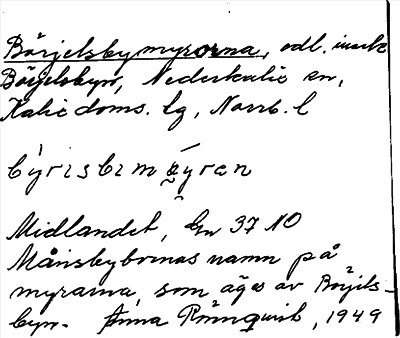 Börjelsbymyrorna, odl. inmk
Börjelsbyn, Nederkalix sn,
Kalix doms. lg, Norrb. l
býrisbimỳran
Midlandet, Gn 37 NO
Månsbybornas namn på
myrarna, som äges av Börjels-
byn. Anna Rönnqvist, 1949